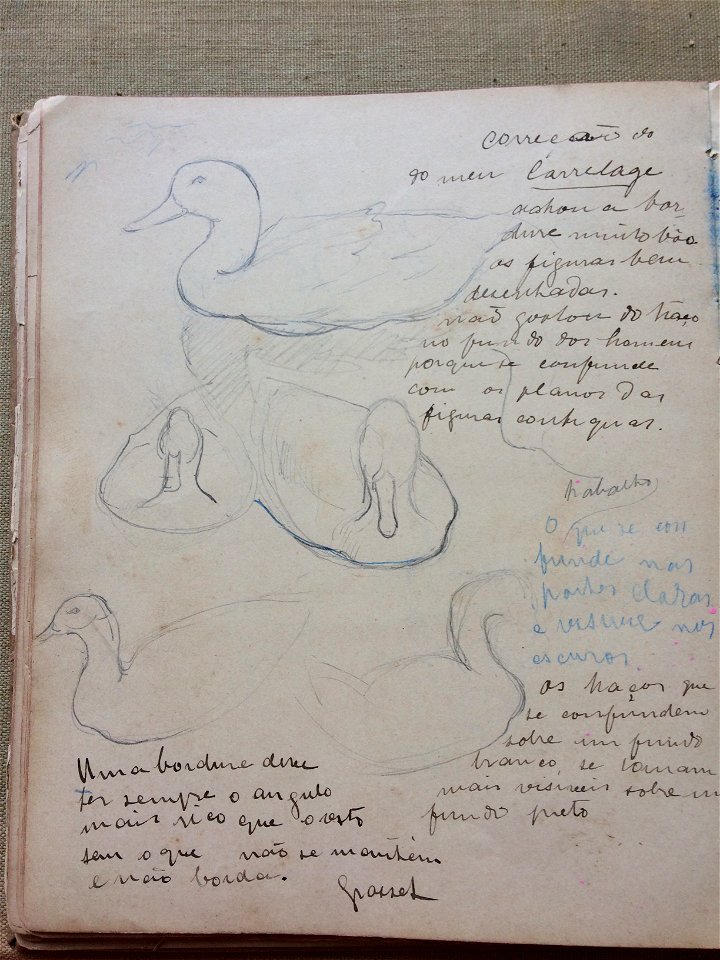 Correcão do
do meu Carrelage
achou a bor
dure muito bôa
as figuras bem
desenhadas.
não gostou do traço
no fundo dos homens
porque se confunde
com os planos das
figuras contiguas.
trabalho
O que se con
funde nas
partes claras
é visivel nos
escuros.
Os traços que
se confundem
sobre um fundo
branco, se tornam
mais visiveis sobre um
fundo preto
Uma bordure deve
ter sempre o angulo
mais rico que o resto
sem o que não se mantém
e não borda.
Grasset